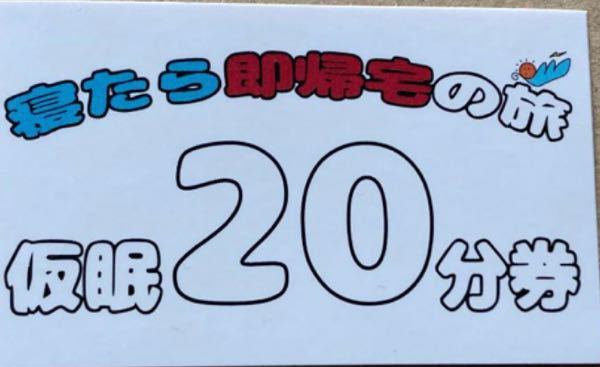 寝たら即帰宅の旅
仮眠20分券